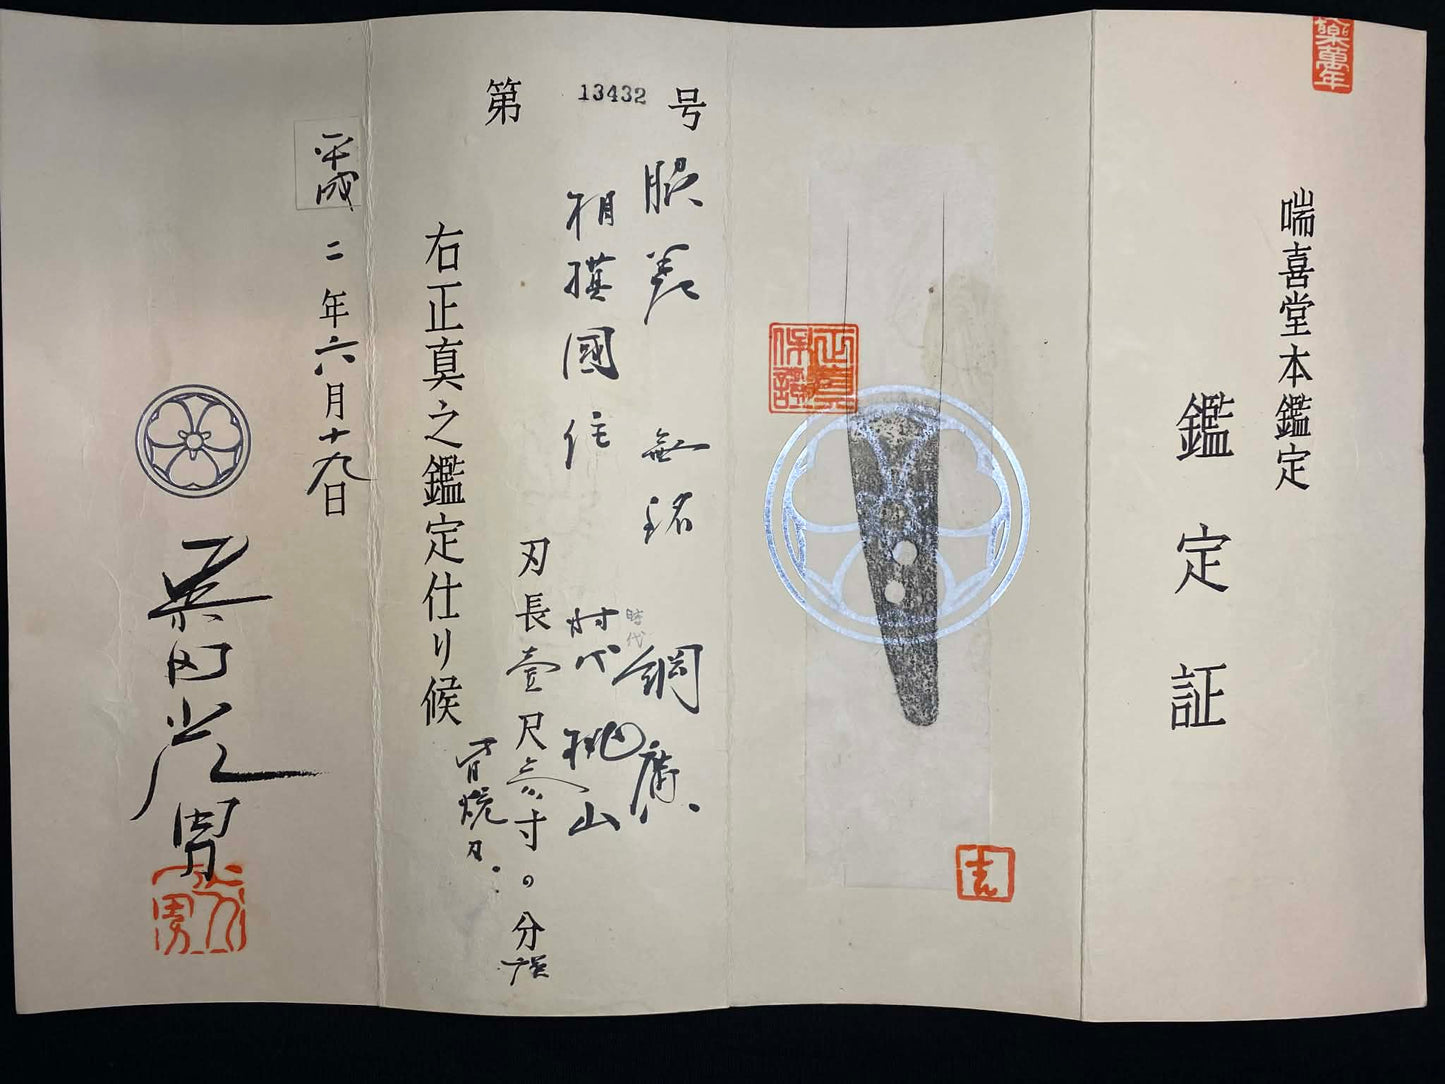 樂萬年
喘喜堂本鑑定
鑑定証
正真
保證
第 13432 号
脇差 無銘 綱廣
時代
相模國住 時代 桃山
刃長壹尺 寸 分
皆焼刃
右正真之鑑定仕り候
平成二年六月十九日
柴田光男
光男